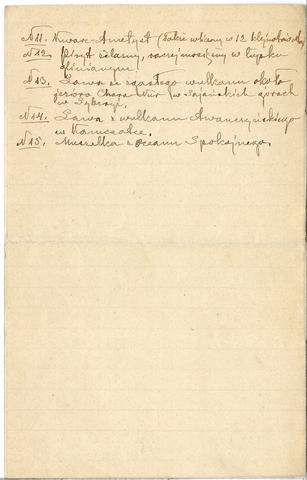 N 11. Kwarc-Ametyst (także w 12 klejnotach)
N 12. Piryt żelazny, w łupku
gliniannym.
N 13. Lawa ze zgasłego wulkanu około
jeziora Chara Nur w Sajańskich górach
w Syberyi.
N 14. Lawa z wulkanu Awaczyńskiego
w Kamczatce.
N 15. Muszelka z Oceanu Spokojnego.